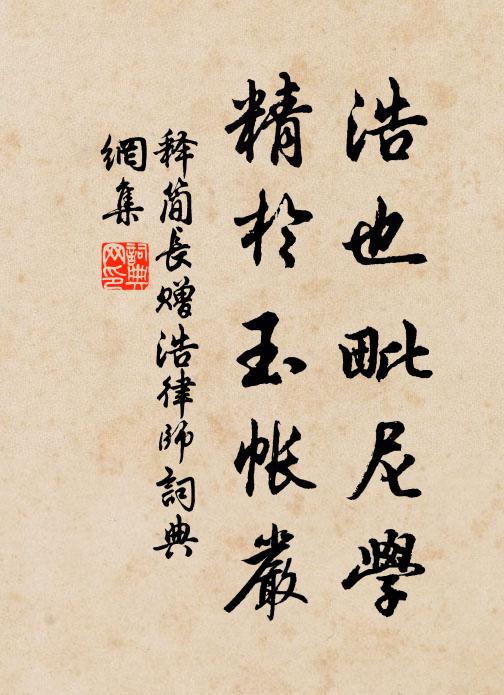 浩也毗尼學
精於玉帳嚴
释简長赠浩律師詞典
網集
詞典網印